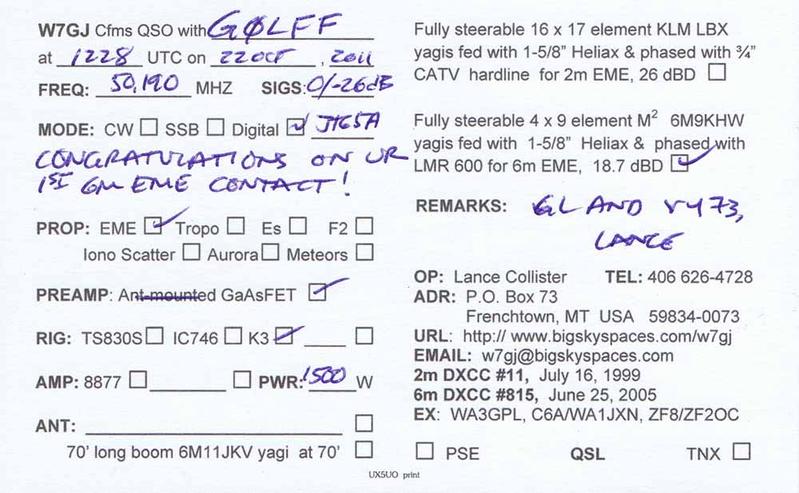 W7GJ Cfms QSO with GØLFF
at 1228 UTC on 22 OCT, 2011
FREQ: 50,190 MHZ SIGS: O/-26dB
MODE: CW SSB Digital JT65A
CONGRATULATIONS ON UR
1ST 6M EME CONTACT!
PROP: EME Tropo Es F2
Iono Scatter Aurora Meteors
PREAMP: Ant-mounted GaAsFET
RIG: TS830S IC746 K3
AMP: 8877 PWR: 1500 W
ANT:
70' long boom 6M11JKV yagi at 70'
Fully steerable 16 x 17 element KLM LBX
yagis fed with 1-5/8" Heliax & phased with ¾"
CATV hardline for 2m EME, 26 dBD
Fully steerable 4 x 9 element M² 6M9KHW
yagis fed with 1-5/8" Heliax & phased with
LMR 600 for 6m EME, 18.7 dBD
REMARKS: GL AND VY 73,
LANCE
OP: Lance Collister TEL: 406 626-4728
ADR: P.O. Box 73
Frenchtown, MT USA 59834-0073
URL: http:// www.bigskyspaces.com/w7gj
EMAIL: w7gj@bigskyspaces.com
2m DXCC #11, July 16, 1999
6m DXCC #815, June 25, 2005
EX: WA3GPL, C6A/WA1JXN, ZF8/ZF2OC
PSE QSL TNX
UX5UO print